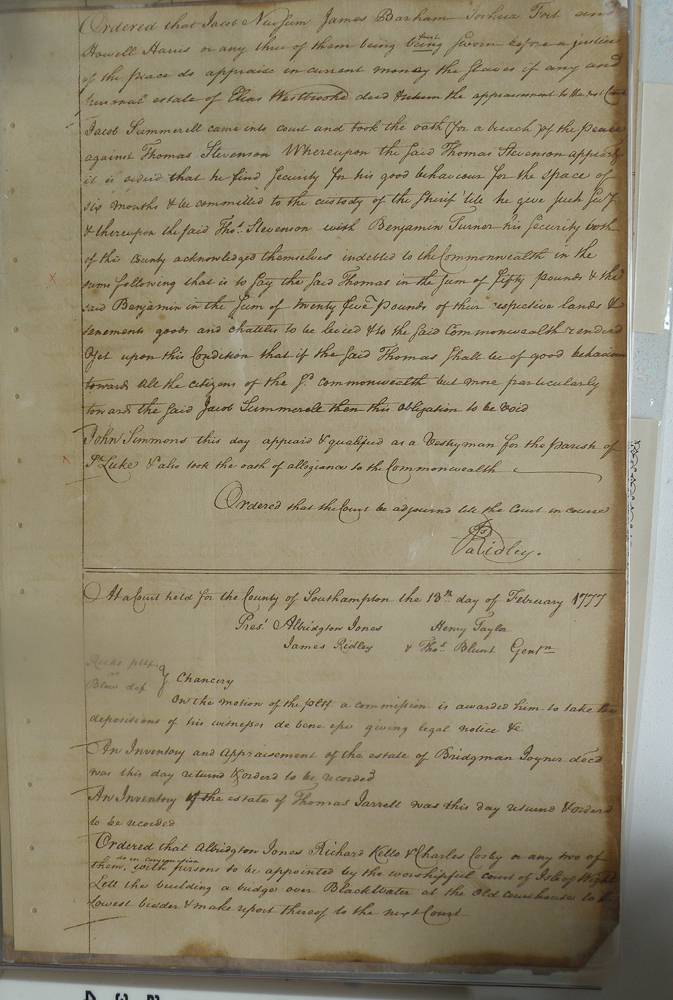 Ordered that Jacob Newsum James Barham Joshua Fort and
Howell Harris or any three of them being first sworn before a justice
of the peace do appraise in current money the slaves if any and
personal estate of Elias Westbrooke decd & return the appraisement to the next Court
Jacob Summerell came into court and took the oath for a breach of the peace
against Thomas Stevenson Whereupon the said Thomas Stevenson appeard
it is orderd that he find security for his good behaviour for the space of
six months & be committed to the custody of the sherif till he give such
& thereupon the said Thos. Stevenson with Benjamin Turner his security both
of this County acknowledged themselves indebted to the Commonwealth in the
sums following that is to say the said Thomas in the sum of fifty pounds & the
said Benjamin in the sum of twenty five pounds of their respective lands &
tenements goods and chatels to be levied & to the said Commonwealth renderd
Yet upon this Condition that if the said Thomas shall be of good behaviour
towards all the citizens of the sd. commonwealth but more particularly
towards the said Jacob Summerell then this obligation to be void
John Simmons this day appeard & qualified as a Vestryman for the parish of
St. Luke & also took the oath of allegiance to the Commonwealth
Ordered that the Court be adjournd till the Court in course
Ja Ridley.
At a Court held for the County of Southampton the 13th. day of February 1777
Pres.t Albridgton Jones Henry Taylor
James Ridley & Thos. Blunt Gentn
Ricks pltf
vs
Blow deft } Chancery
On the motion of the pltf a commission is awarded him to take the
depositions of his witnesses de bene esse giving legal notice &c
An Inventory and appraisement of the estate of Bridgman Joyner decd
was this day returnd & orderd to be recorded
An Inventory of the estate of Thomas Jarrell was this day returnd & orderd
to be recorded
Ordered that Albridgton Jones Richard Kello & Charles Cosby or any two of
them, in conjunction with persons to be appointed by the worshipful court of Isle of Wight
Lett the building a bridge over Blackwater at the old courthouse to the
lowest bidder & make report thereof to the next Court